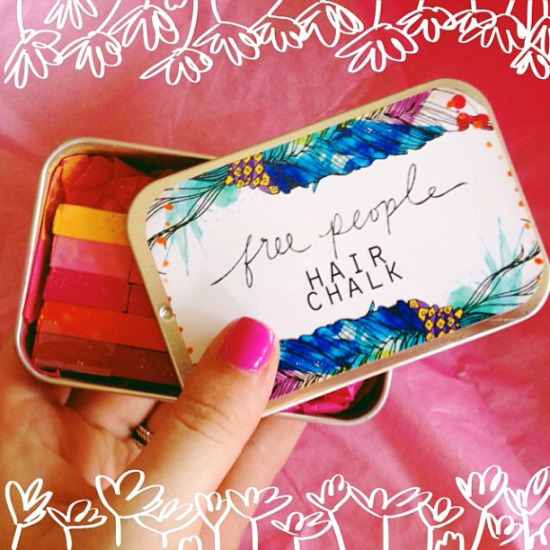 free people
HAIR
CHALK